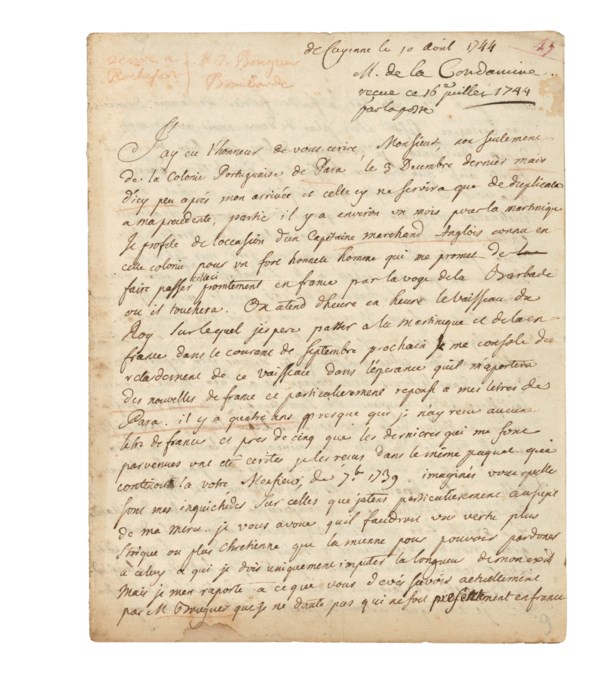 de Cayenne le 10 avril 1744
M. de la Condamine
reçue ce 16 juillet 1744
par la poste
J'ay eu l'honneur de vous ecrire, Monsieur, non seulement
de la Colonie Portugaise de Para le 3 Decembre dernier mais
d'icy peu après mon arrivée et celle cy ne servira que de duplicata
a ma precedente, partie il y a environ un mois pour la martinique
Je profite de l'occasion d'un Capitaine marchand Anglois connu en
cette colonie pour un fort honnete homme qui me promet de
faire passer celleci promtement en france par la voye de la Barbade
ou il touchera. On atend d'heure en heure le vaisseau du
Roy sur lequel j'espere passer a la Martinique et de la en
france dans le courant de septembre prochain Je me console du
retardement de ce vaisseau dans l'esperance qu'il m'aportera
des nouvelles de france et particulierement reponse a mes letres de
Para. il y a quatre ans presque que je n'ay recu aucune
letre de france et pres de cinq que les dernieres qui me sont
parvenues ont eté ecrites je les recus dans le même paquet que
contenoit la votre Monsieur, de 7bre 1739 imaginés vous quelles
sont mes inquiétudes sur celles que j'atens particulierement au sujet
de ma mere. je vous avoue qu'il faudroit une vertu plus
stoique ou plus chretienne que la mienne pour pouvoir pardonner
à celuy a qui je dois uniquement imputer la longueur de mon exil
Mais je m'en raporte a ce que vous devés savoir actuellement
par M. Bouguer que je ne doute pas qui ne soit presentement en france